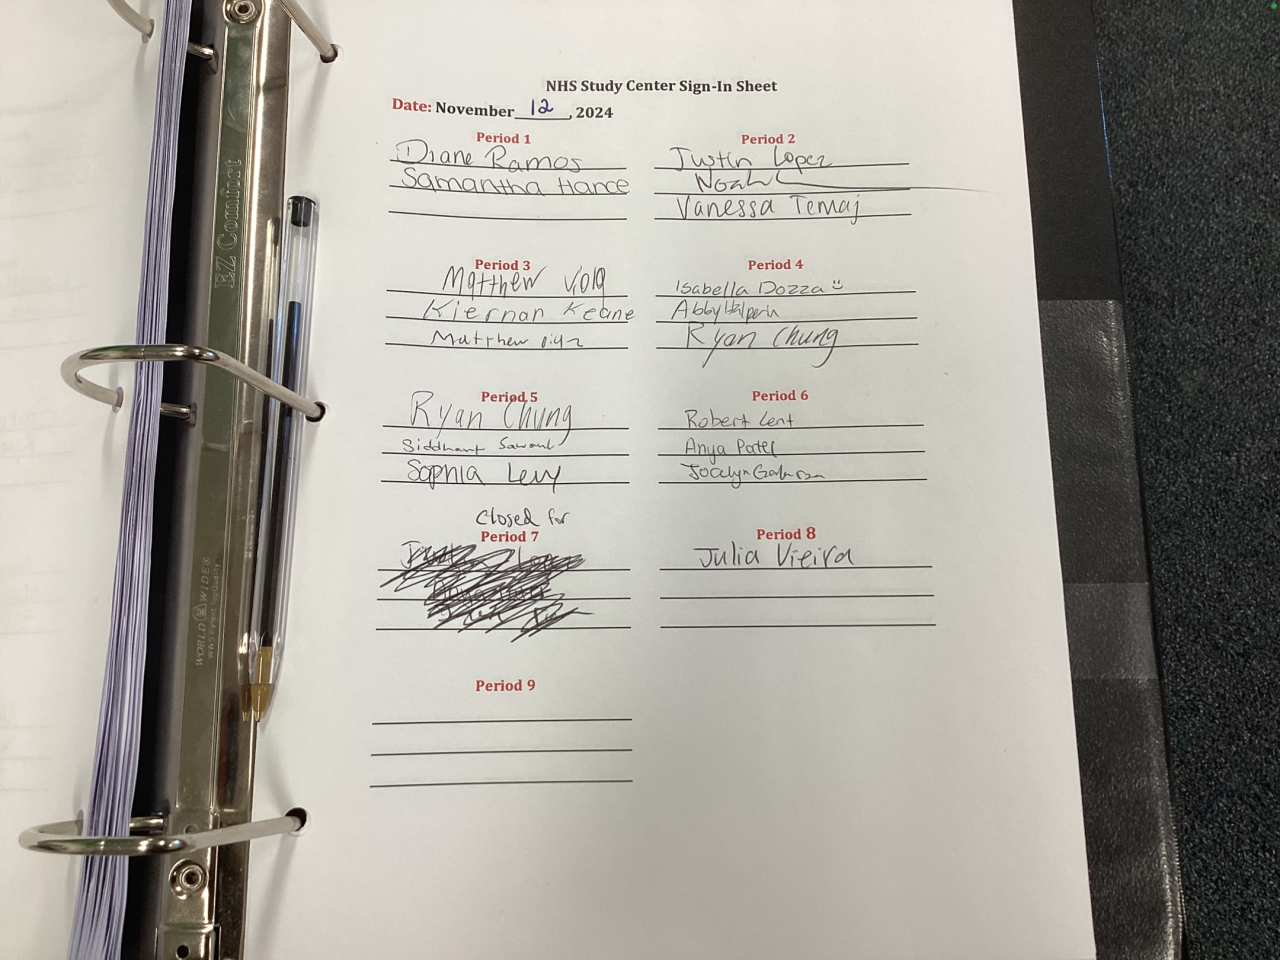 NHS Study Center Sign-In Sheet
Date: November 12, 2024
Period 1
Diane Ramos
Samantha Hance
Period 2
Justin Lopez
Noah
Vanessa Temaj
Period 3
Matthew
Kiernan Keane
Matthew
Period 4
Isabella Dozza
Abby Halperin
Ryan Chung
Period 5
Ryan Chung
Siddhant Sawant
Sophia Levy
Period 6
Robert Lent
Anya Patel
Jocelyn
closed for
Period 7
Period 8
Julia Vieira
Period 9
EZ Comfort
WORLD WIDE